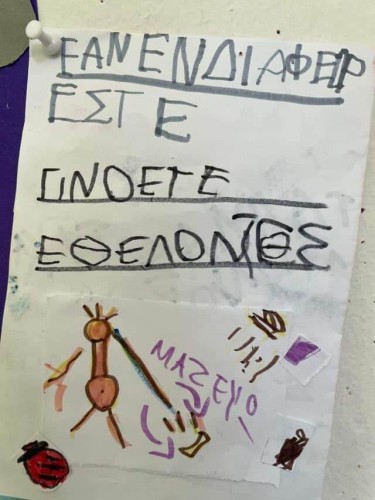 ΕΑΝ ΕΝΔΙΑΦΕΡ
ΕΣΤΕ
ΓΙΝΟΕΤΕ
ΕΘΕΛΟΝΤΕΣ
ΜΑΖΕΥΩ